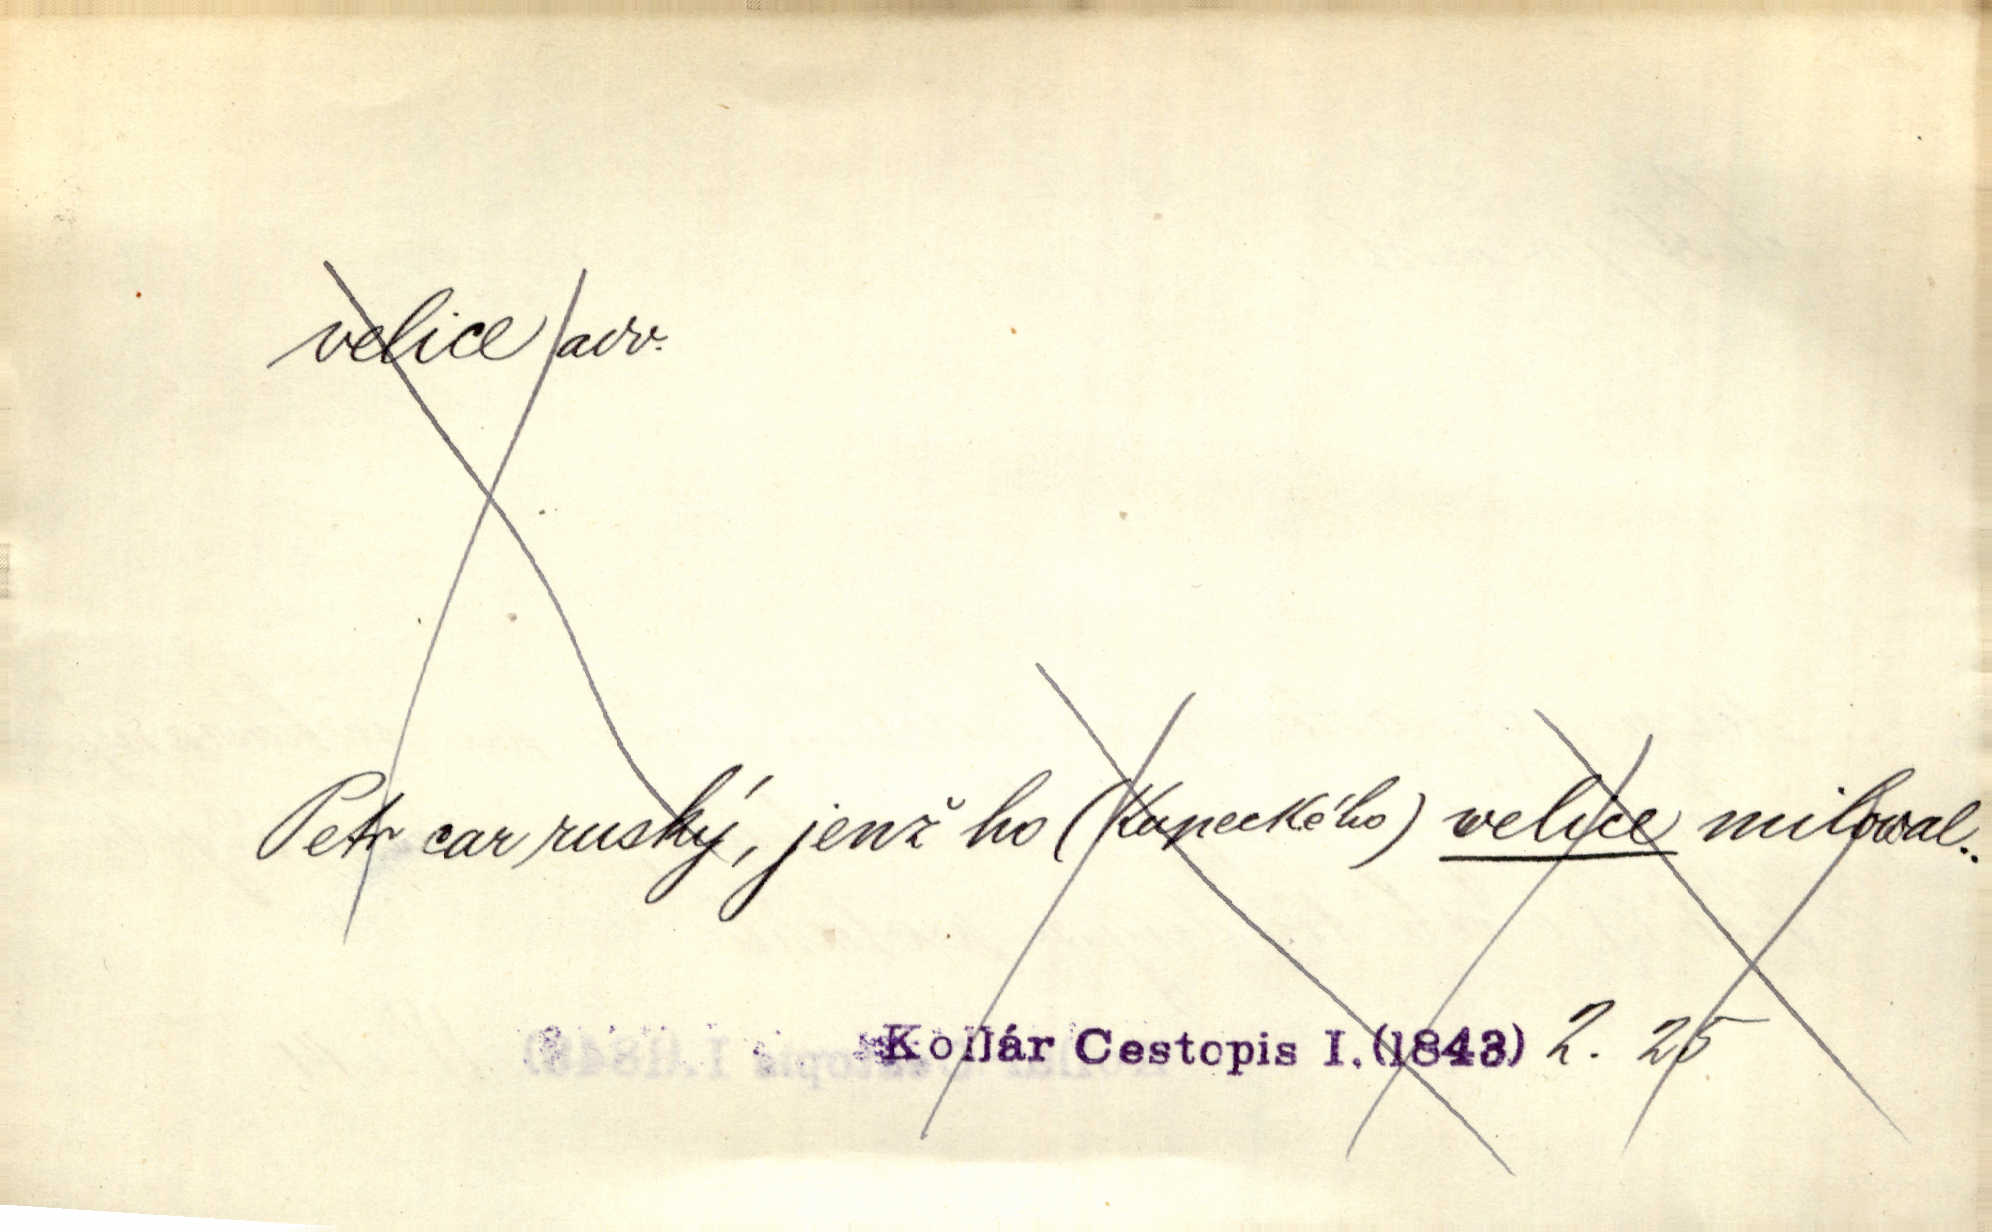 velice adv.
Petr car ruský, jenž ho (Kupeckého) welice milowal..
Kollár Cestopis I. (1843) 2. 25